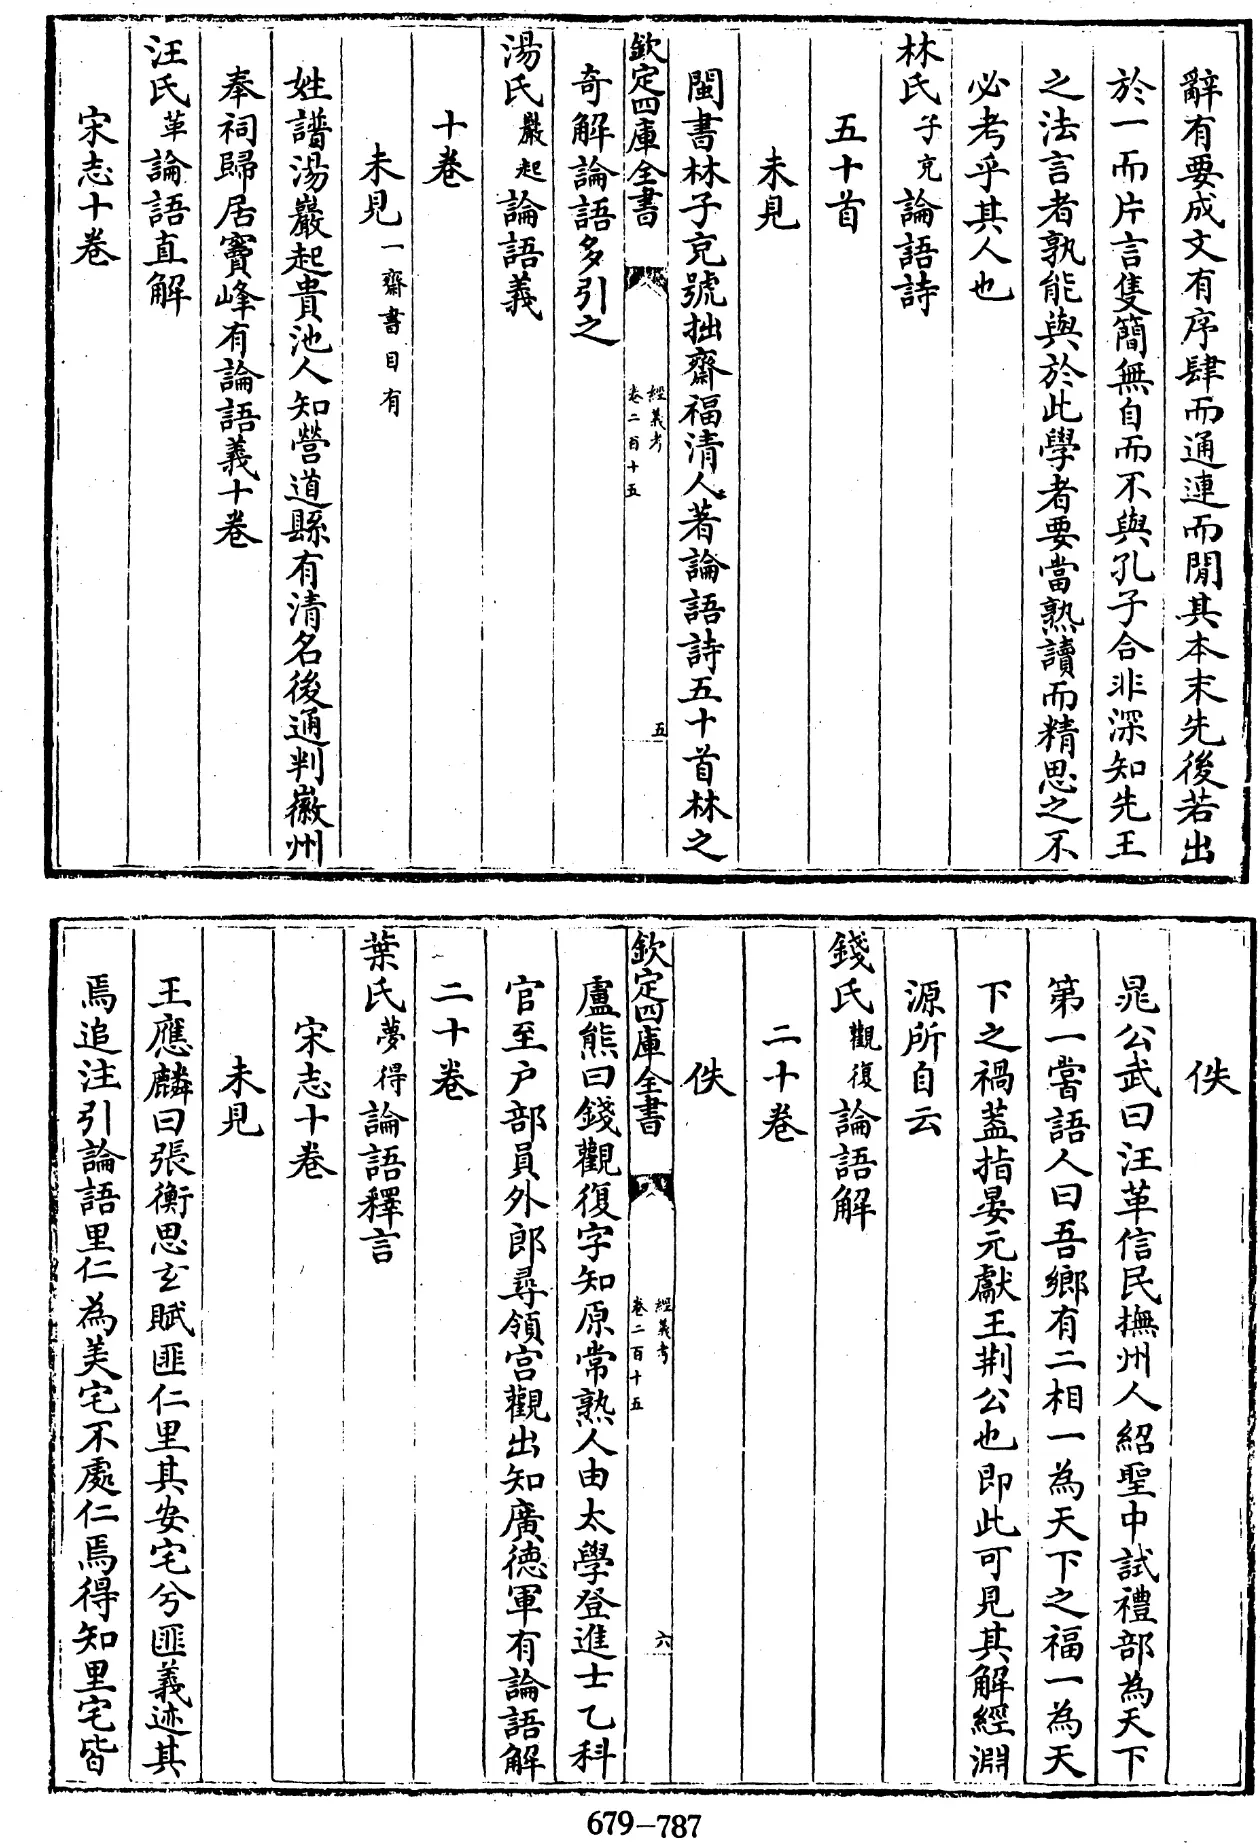 辭有要成文有序肆而通連而閒其本末先後若出
於一而片言隻簡無自而不與孔子合非深知先王
之法言者孰能與於此學者要當熟讀而精思之不
必考乎其人也
林氏子充論語詩
五十首
未見
閩書林子充號拙齋福清人著論語詩五十首林之
欽定四庫全書
經義考
卷二百十五
五
奇解論語多引之
湯氏巖起論語義
十卷
未見一齋書目有
姓譜湯巖起貴池人知營道縣有清名後通判徽州
奉祠歸居寶峰有論語義十卷
汪氏革論語直解
宋志十卷
佚
晁公武曰汪革信民撫州人紹聖中試禮部為天下
第一嘗語人曰吾鄉有二相一為天下之福一為天
下之禍蓋指晏元獻王荆公也即此可見其解經淵
源所自云
錢氏觀復論語解
二十卷
佚
欽定四庫全書
經義考
卷二百十五
六
盧熊曰錢觀復字知原常熟人由太學登進士乙科
官至户部員外郎尋領宫觀出知廣德軍有論語解
二十卷
葉氏夢得論語釋言
宋志十卷
未見
王應麟曰張衡思玄賦匪仁里其安宅兮匪義迹其
焉追注引論語里仁為美宅不處仁焉得知里宅皆
679-787